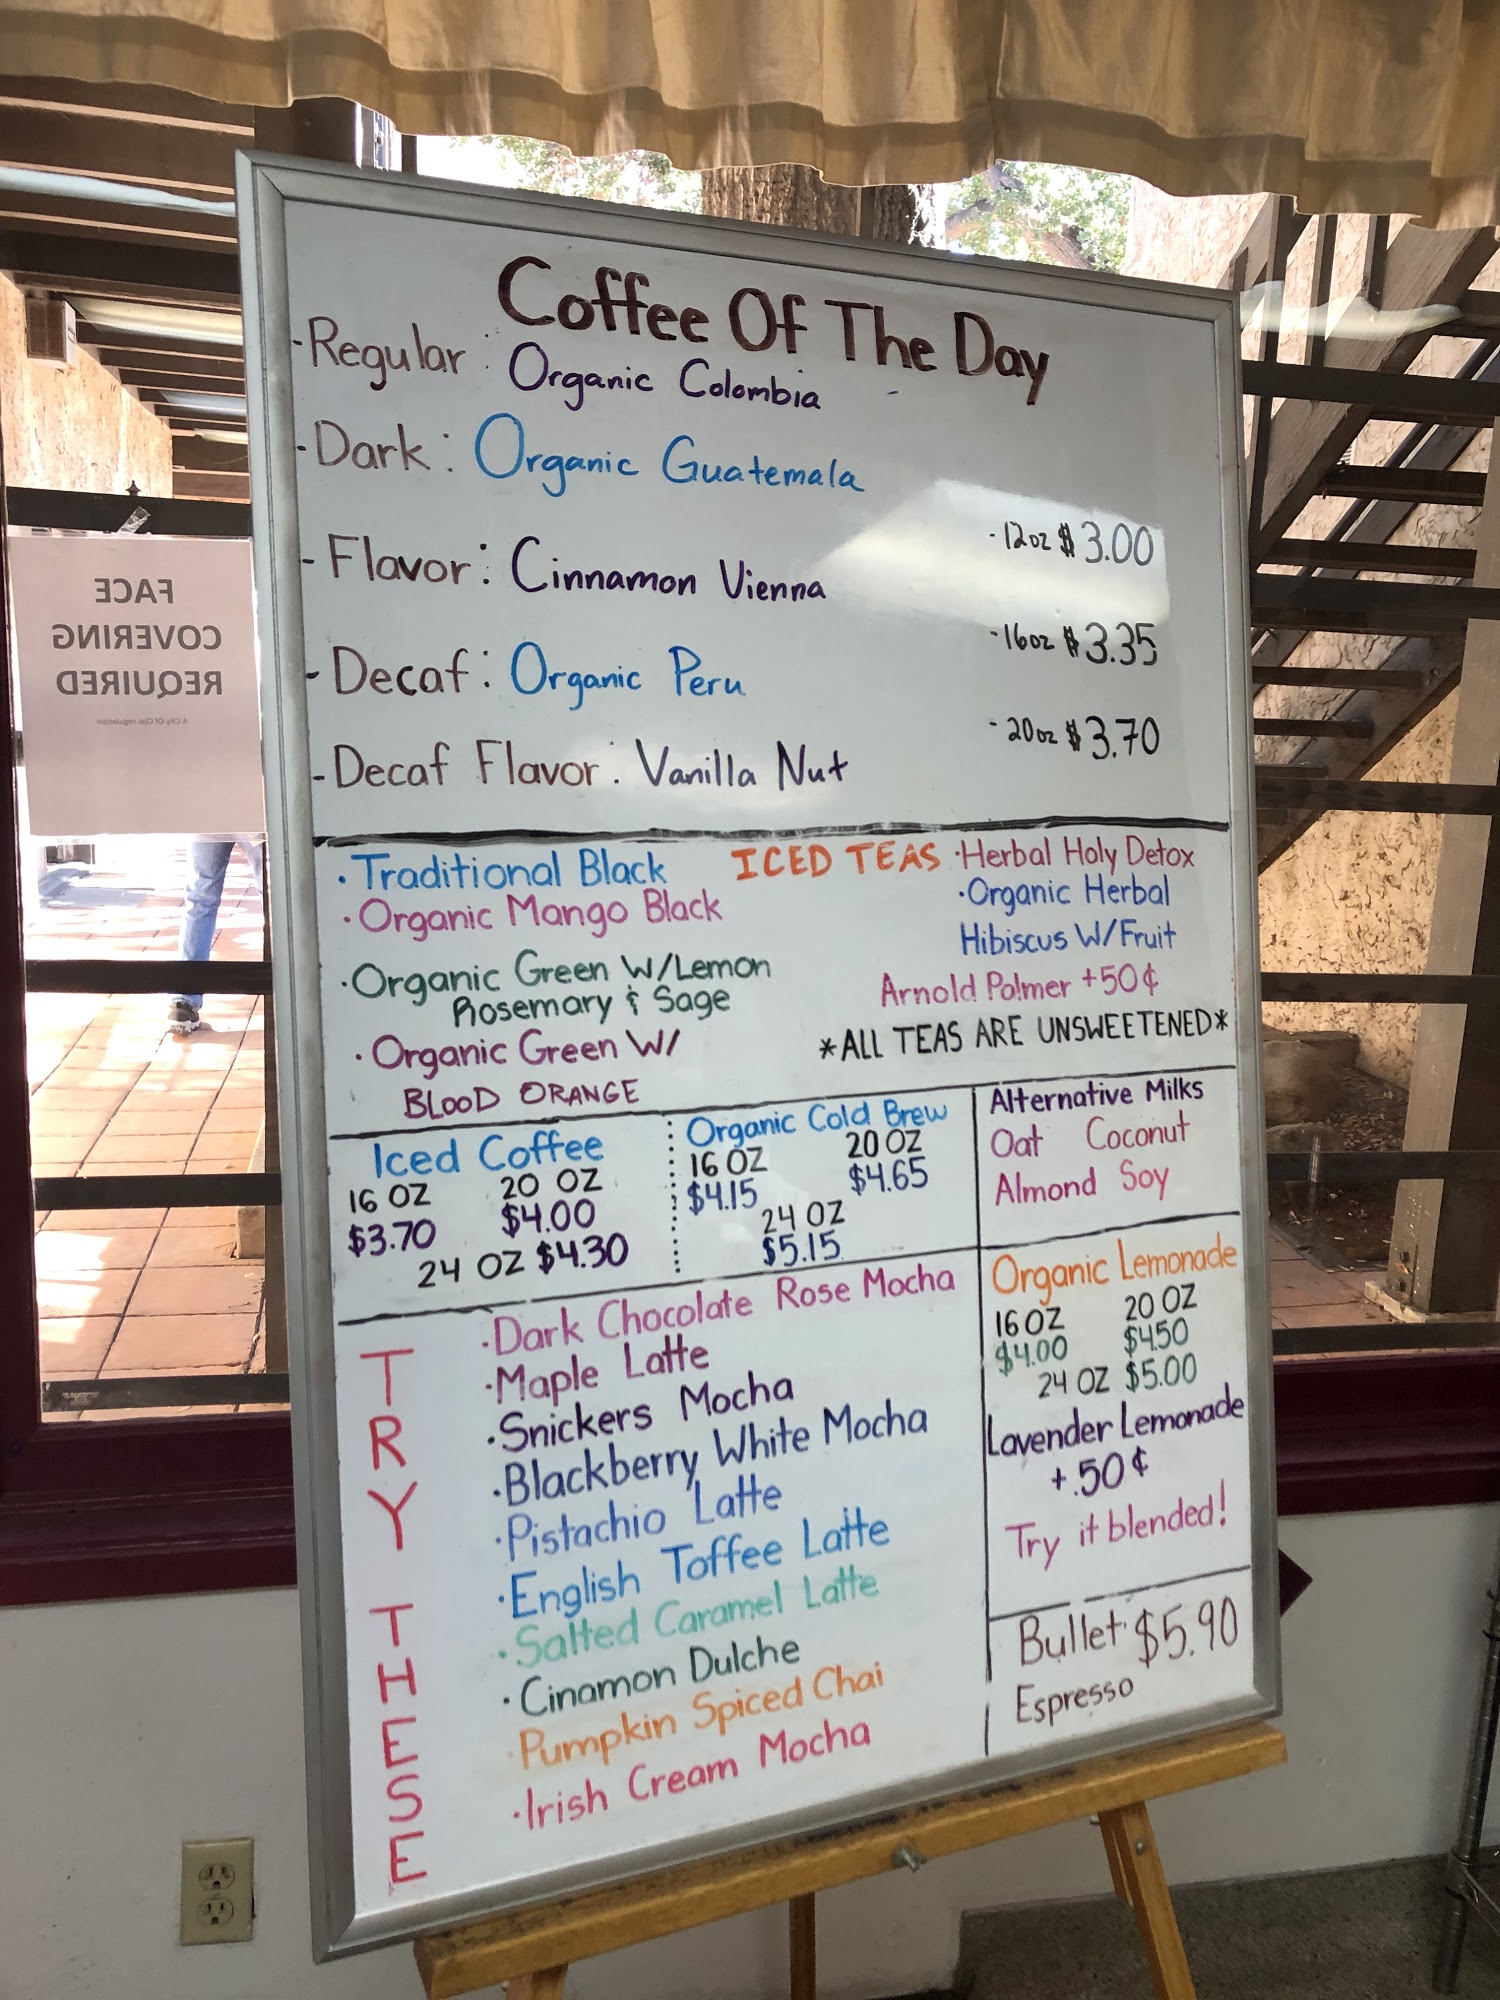 Coffee Of The Day
-Regular: Organic Colombia
-Dark: Organic Guatemala
-Flavor: Cinnamon Vienna
-Decaf: Organic Peru
-Decaf Flavor: Vanilla Nut
-12oz $3.00
-16oz $3.35
-20oz $3.70
ICED TEAS
·Traditional Black
·Organic Mango Black
·Organic Green W/Lemon
Rosemary & Sage
·Organic Green W/
BLOOD ORANGE
·Herbal Holy Detox
·Organic Herbal
Hibiscus W/Fruit
Arnold Palmer +50¢
*ALL TEAS ARE UNSWEETENED*
Iced Coffee
16 OZ 20 OZ
$3.70 $4.00
24 OZ $4.30
Organic Cold Brew
16 OZ 20 OZ
$4.15 $4.65
24 OZ
$5.15
Alternative Milks
Oat Coconut
Almond Soy
TRY THESE
·Dark Chocolate Rose Mocha
·Maple Latte
·Snickers Mocha
·Blackberry White Mocha
·Pistachio Latte
·English Toffee Latte
·Salted Caramel Latte
·Cinamon Dulche
·Pumpkin Spiced Chai
·Irish Cream Mocha
Organic Lemonade
16 OZ 20 OZ
$4.00 $4.50
24 OZ $5.00
Lavender Lemonade
+.50¢
Try it blended!
Bullet $5.90
Espresso
FACE
COVERING
REQUIRED
A City Of Ojai regulation